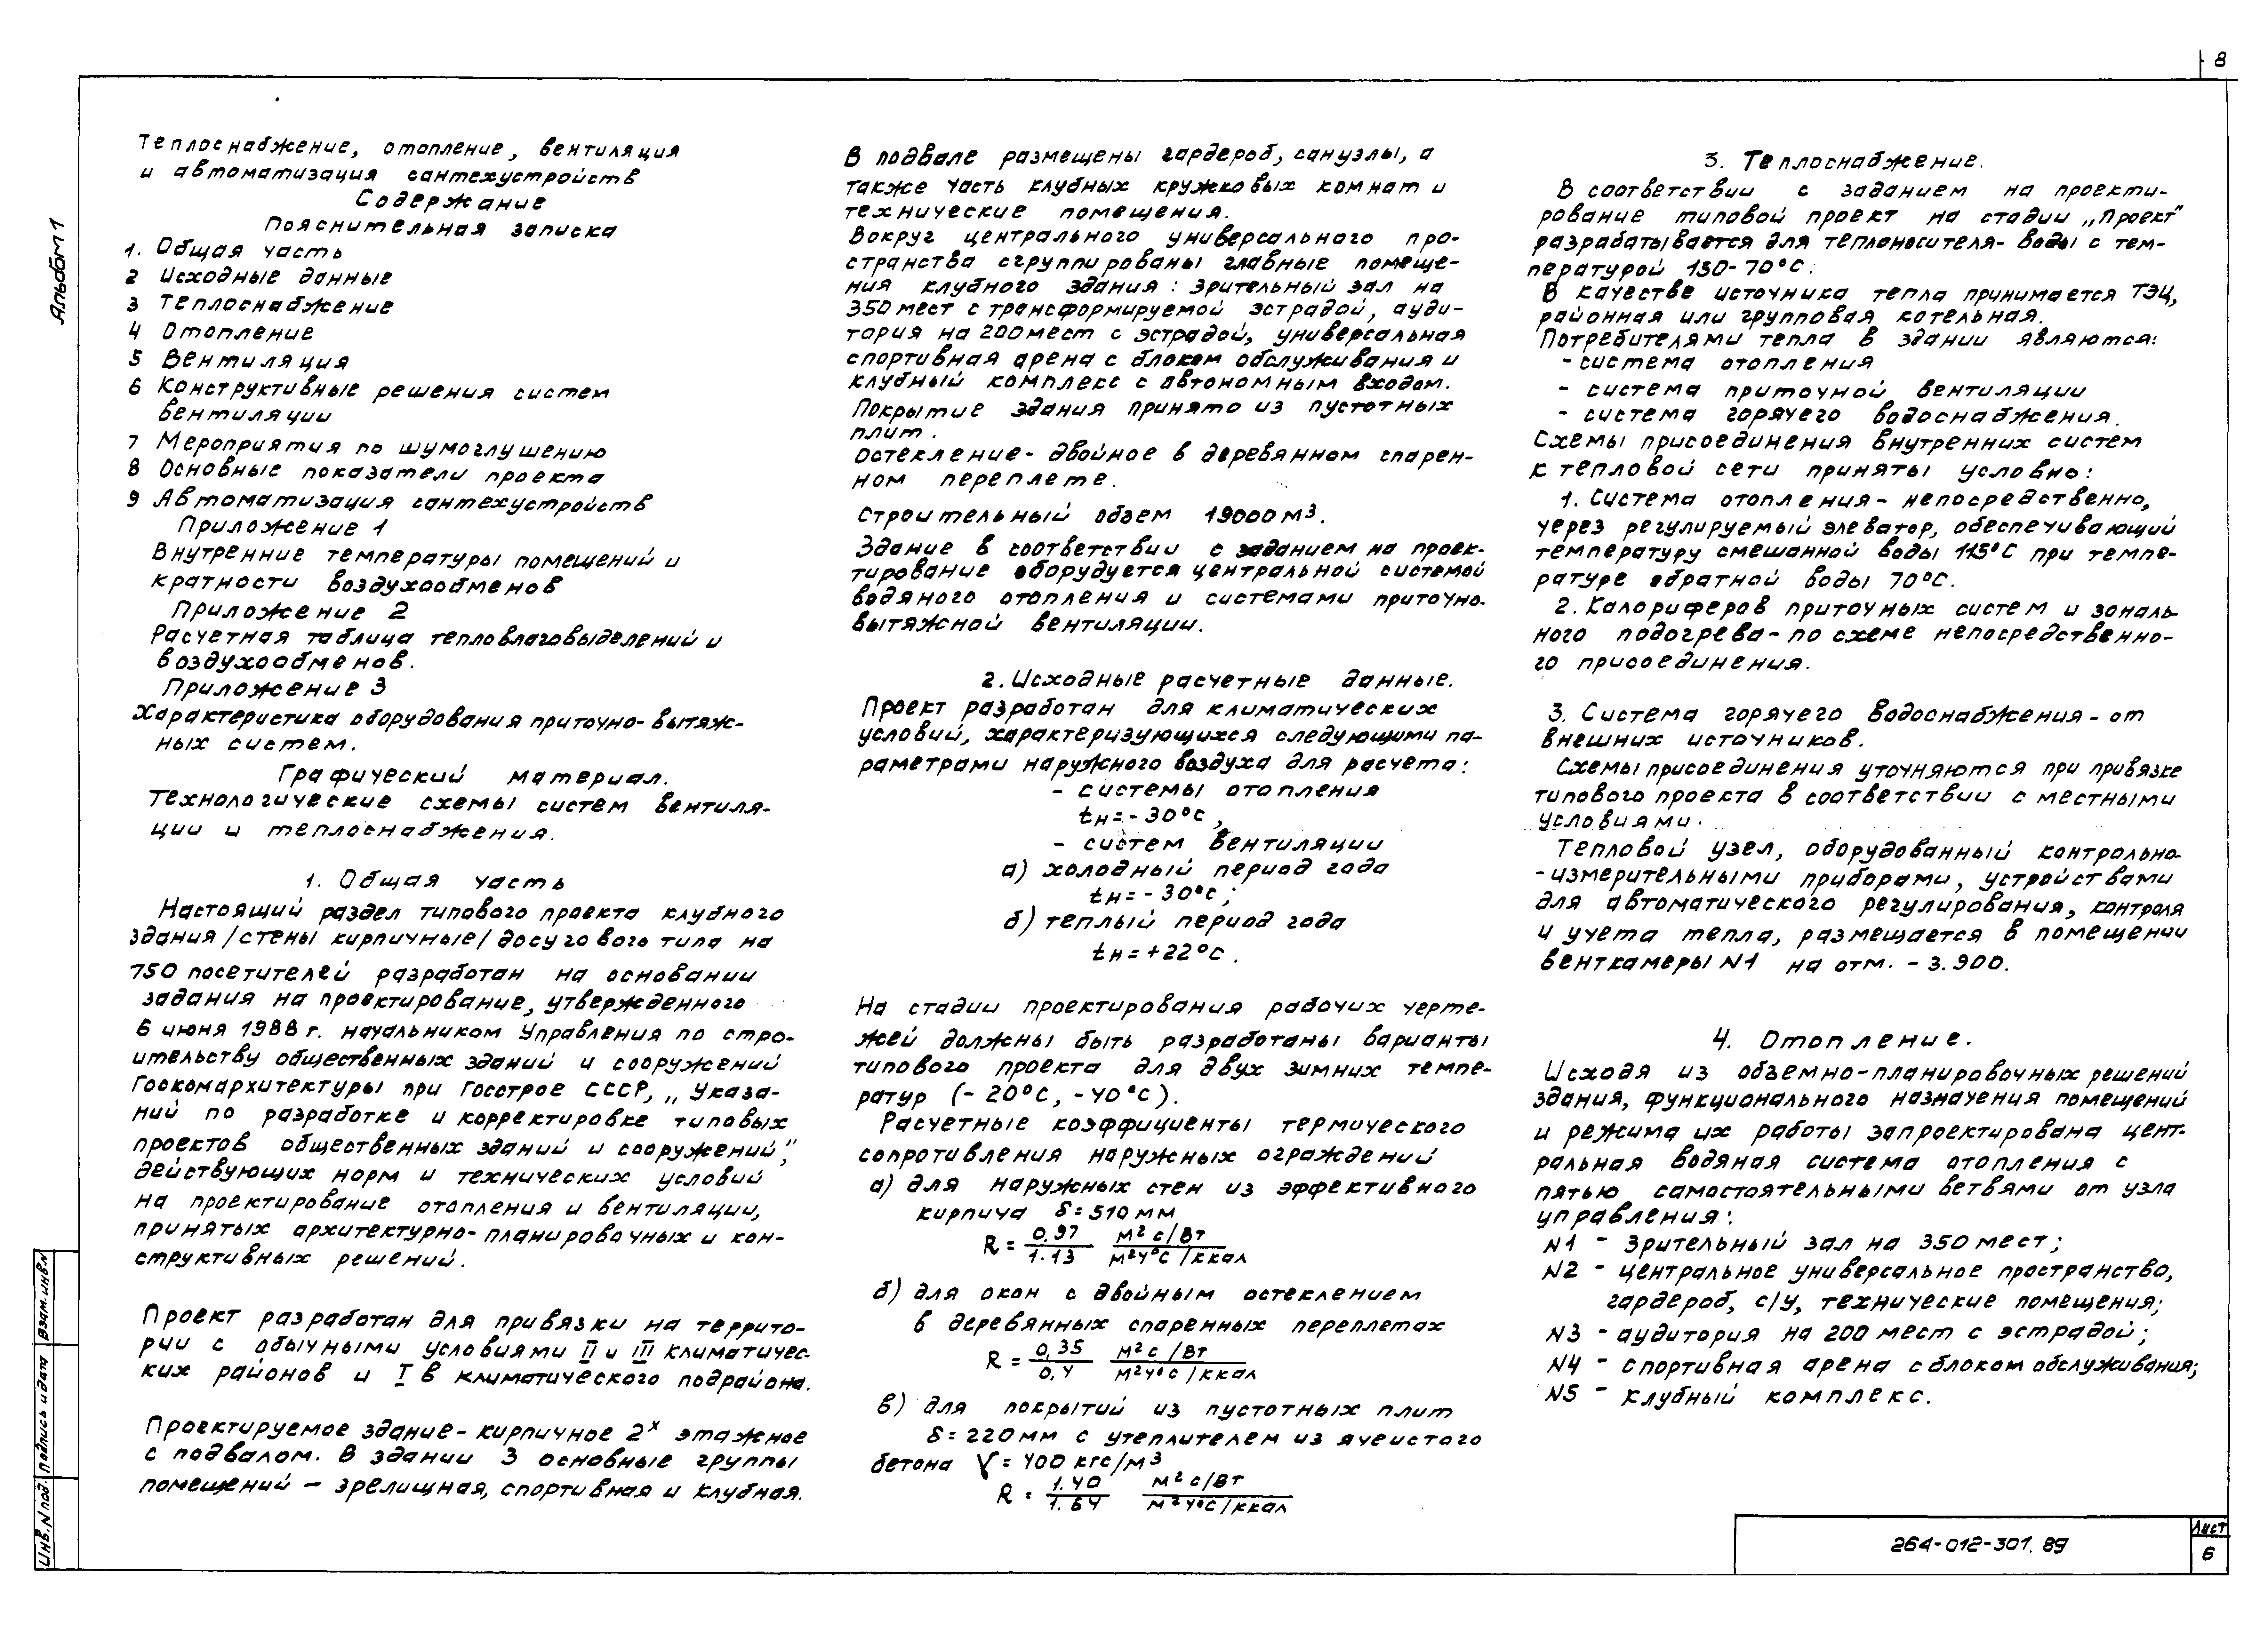 8
Альбом 1
Теплоснабжение, отопление, вентиляция
и автоматизация сантехустройств
Содержание
Пояснительная записка
1. Общая часть
2 Исходные данные
3 Теплоснабжение
4 Отопление
5 Вентиляция
6 Конструктивные решения систем
вентиляции
7 Мероприятия по шумоглушению
8 Основные показатели проекта
9 Автоматизация сантехустройств
Приложение 1
Внутренние температуры помещений и
кратности воздухообменов
Приложение 2
Расчетная таблица тепловлаговыделений и
воздухообменов.
Приложение 3
Характеристика оборудования приточно-вытяж-
ных систем.
Графический материал.
Технологические схемы систем вентиля-
ции и теплоснабжения.
1. Общая часть
Настоящий раздел типового проекта клубного
здания /стены кирпичные/ досугового типа на
750 посетителей разработан на основании
задания на проектирование, утвержденного
6 июня 1988 г. начальником Управления по стро-
ительству общественных зданий и сооружений
Госкомархитектуры при Госстрое СССР, „Указа-
ний по разработке и корректировке типовых
проектов общественных зданий и сооружений",
действующих норм и технических условий
на проектирование отопления и вентиляции,
принятых архитектурно-планировочных и кон-
структивных решений.
Проект разработан для привязки на террито-
рии с обычными условиями II и III климатичес-
ких районов и I в климатического подрайона.
Проектируемое здание-кирпичное 2х этажное
с подвалом. В здании 3 основные группы
помещений – зрелищная, спортивная и клубная.
В подвале размещены гардероб, санузлы, а
также часть клубных кружковых комнат и
технические помещения.
Вокруг центрального универсального про-
странства сгруппированы главные помеще-
ния клубного здания: зрительный зал на
350 мест с трансформируемой эстрадой, ауди-
тория на 200 мест с эстрадой, универсальная
спортивная арена с блоком обслуживания и
клубный комплекс с автономным входом.
Покрытие здания принято из пустотных
плит.
Остекление-двойное в деревянном спарен-
ном переплете.
Строительный объем 19000 м³.
Здание в соответствии с заданием на проек-
тирование оборудуется центральной системой
водяного отопления и системами приточно-
вытяжной вентиляции.
2. Исходные расчетные данные.
Проект разработан для климатических
условий, характеризующихся следующими па-
раметрами наружного воздуха для расчета:
- системы отопления
tн=-30°С,
- систем вентиляции
а) холодный период года
tн=-30°С;
б) теплый период года
tн=+22°С.
На стадии проектирования рабочих черте-
жей должны быть разработаны варианты
типового проекта для двух зимних темпе-
ратур (-20°С, -40°С).
Расчетные коэффициенты термического
сопротивления наружных ограждений
а) для наружных стен из эффективного
кирпича δ=510 мм
R = 0,97/1.13 м² с/Вт / м²ч°С/ккал
б) для окон с двойным остеклением
в деревянных спаренных переплетах
R = 0,35/0,4 м²с/Вт / м²ч°С/ккал
в) для покрытий из пустотных плит
δ=220 мм с утеплителем из ячеистого
бетона γ=400 кгс/м³
R = 1.40/1.64 м² с/Вт / м²ч°С/ккал
3. Теплоснабжение.
В соответствии с заданием на проекти-
рование типовой проект на стадии „Проект"
разрабатывается для теплоносителя-воды с тем-
пературой 150-70°С.
В качестве источника тепла принимается ТЭЦ,
районная или групповая котельная.
Потребителями тепла в здании являются:
-система отопления
- система приточной вентиляции
- система горячего водоснабжения.
Схемы присоединения внутренних систем
к тепловой сети приняты условно:
1. Система отопления-непосредственно,
через регулируемый элеватор, обеспечивающий
температуру смешанной воды 115°С при темпе-
ратуре обратной воды 70°С.
2. Калориферов приточных систем и зональ-
ного подогрева-по схеме непосредственно-
го присоединения.
3. Система горячего водоснабжения-от
внешних источников.
Схемы присоединения уточняются при привязке
типового проекта в соответствии с местными
условиями.
Тепловой узел, оборудованный контрольно-
-измерительными приборами, устройствами
для автоматического регулирования, контроля
и учета тепла, размещается в помещении
венткамеры N1 на отм. -3.900.
4. Отопление.
Исходя из объемно-планировочных решений
здания, функционального назначения помещений
и режима их работы запроектирована цент-
ральная водяная система отопления с
пятью самостоятельными ветвями от узла
управления:
N1 - Зрительный зал на 350 мест;
N2 - центральное универсальное пространство,
гардероб, с/у, технические помещения;
N3 - аудитория на 200 мест с эстрадой;
N4 - спортивная арена с блоком обслуживания;
N5 - клубный комплекс.
Инв.N под
Подпись и дата
Взам.инв.N
264-012-301. 89
Лист
6